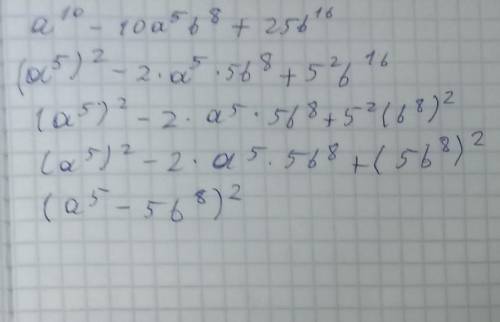 a¹⁰ - 10a⁵b⁸ + 25b¹⁶
(a⁵)² - 2·a⁵·5b⁸ + 5²b¹⁶
(a⁵)² - 2·a⁵·5b⁸ + 5²(b⁸)²
(a⁵)² - 2·a⁵·5b⁸ + (5b⁸)²
(a⁵ - 5b⁸)²